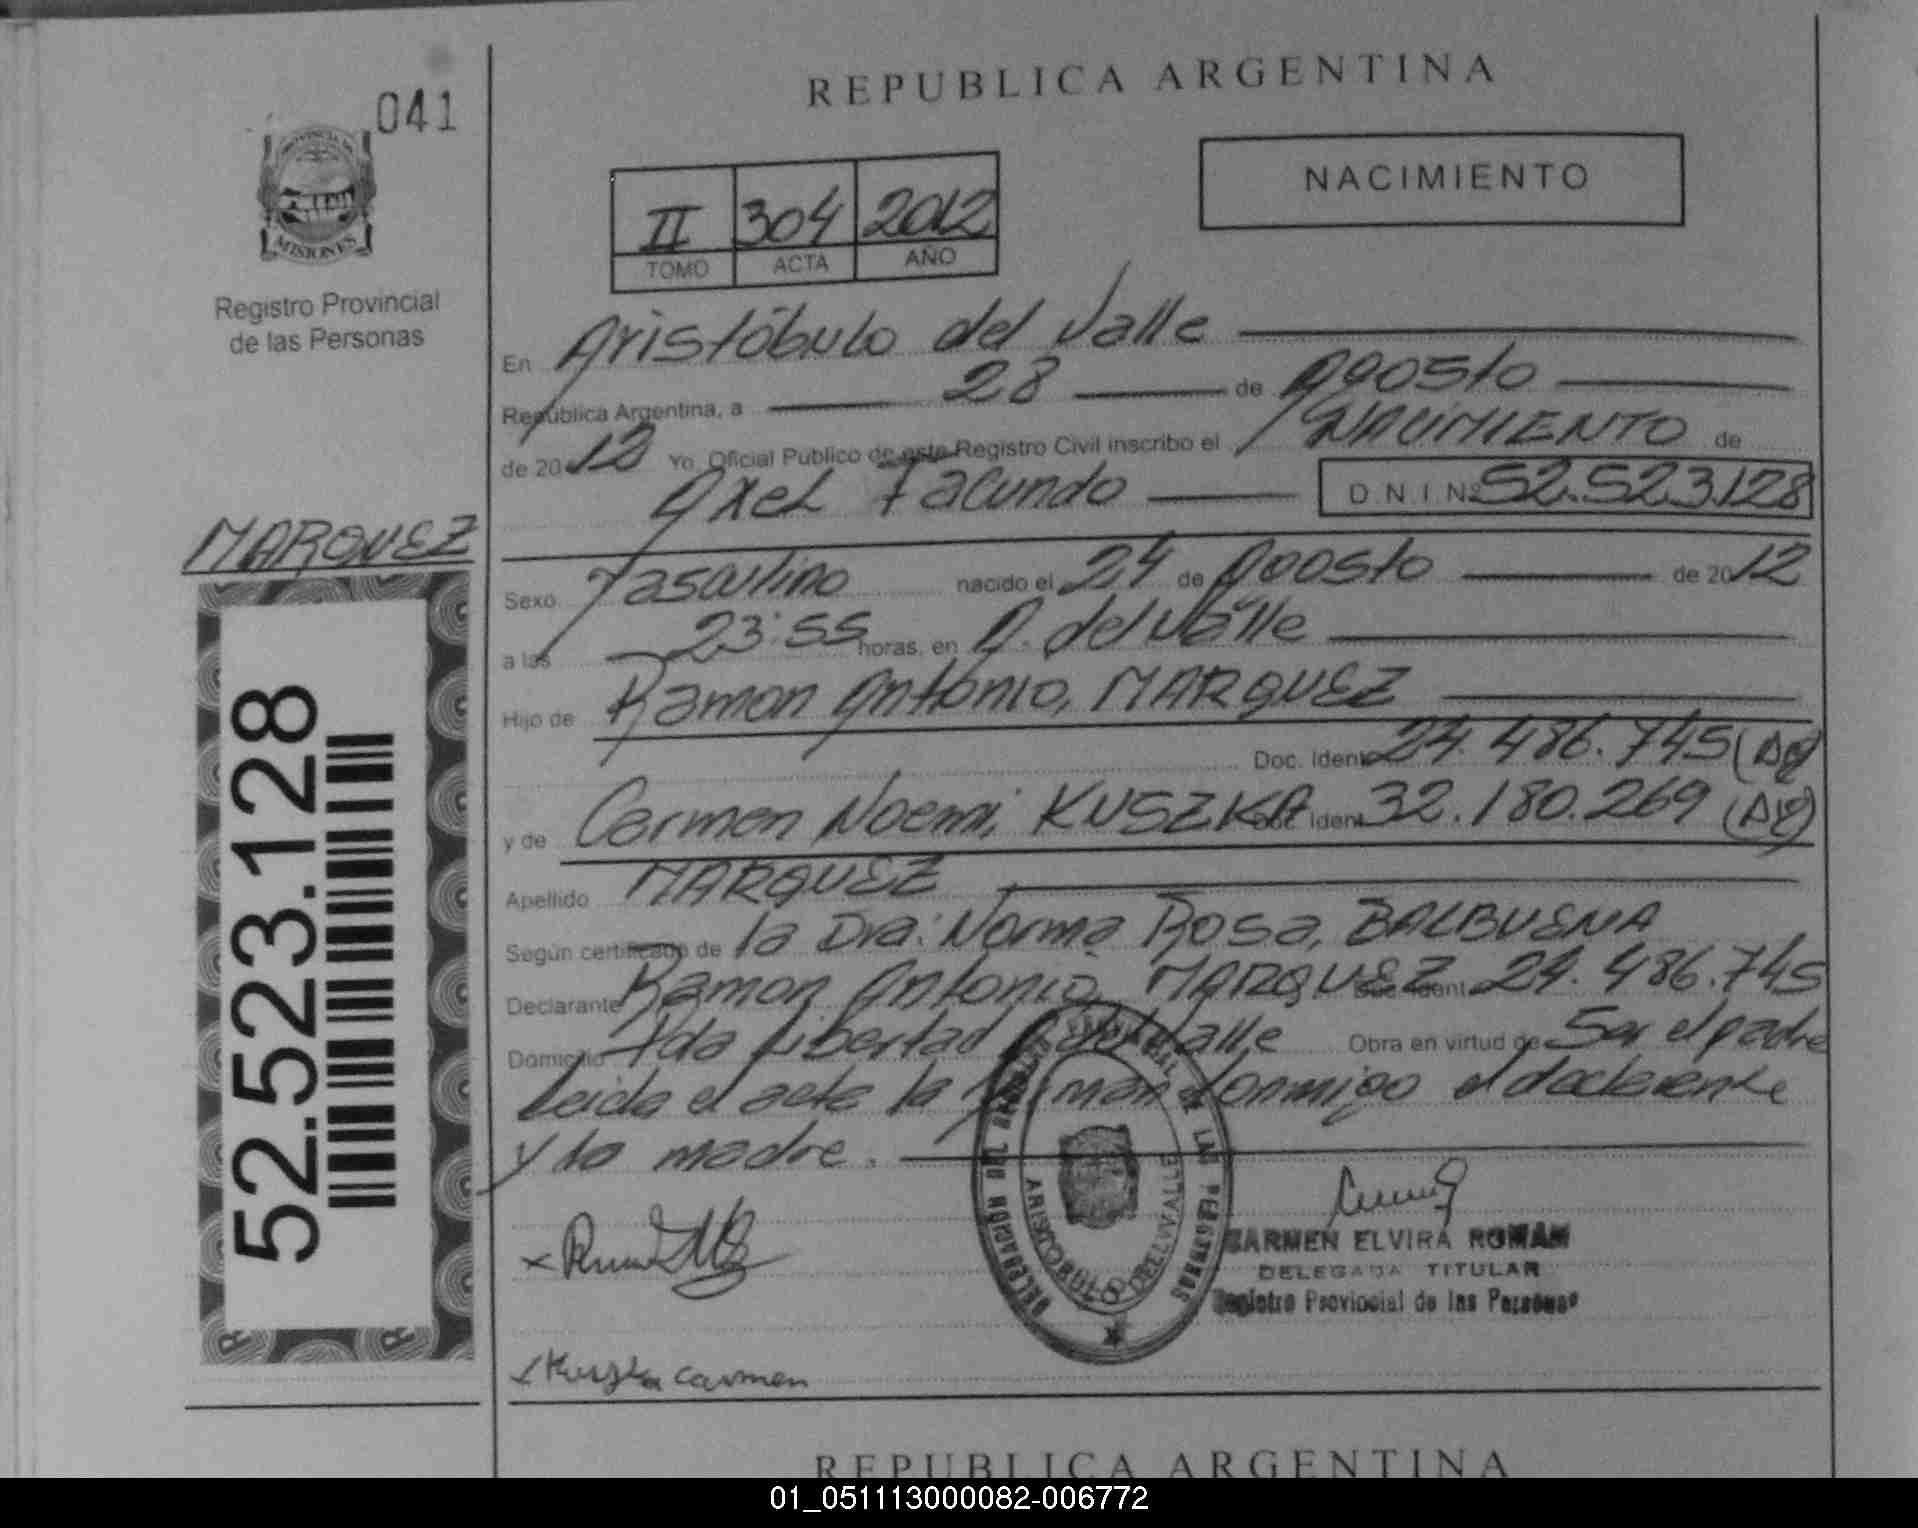 REPUBLICA ARGENTINA
041
NACIMIENTO
II 304 2012
TOMO ACTA AÑO
MISIONES
Registro Provincial
de las Personas
En Aristóbulo del Valle
República Argentina, a 28 de Agosto
de 2012 Yo, Oficial Publico de este Registro Civil inscribo el NACIMIENTO de
Axel Facundo D N I Nº 52.523.128
MARQUEZ
Sexo Masculino nacido el 24 de Agosto de 2012
a las 23:55 horas, en A. del Valle
Hijo de Ramon Antonio, MARQUEZ
Doc. Ident. 24.486.745
y de Carmen Noemi, KUSZKA Doc. Ident. 32.180.269
Apellido MARQUEZ
Según certificado de la Dra: Norma Rosa, BALBUENA
Declarante Ramon Antonio, MARQUEZ Doc. Ident. 24.486.745
Domicilio Pda Libertad A. del Valle Obra en virtud de Ser el padre
Leida el acta la firman conmigo el declarante
y la madre.
52.523.128
ARISTOBULO DEL VALLE
CARMEN ELVIRA ROMAN
DELEGADA TITULAR
Registro Provincial de las Personas
Kuszka Carmen
REPUBLICA ARGENTINA
01_051113000082-006772